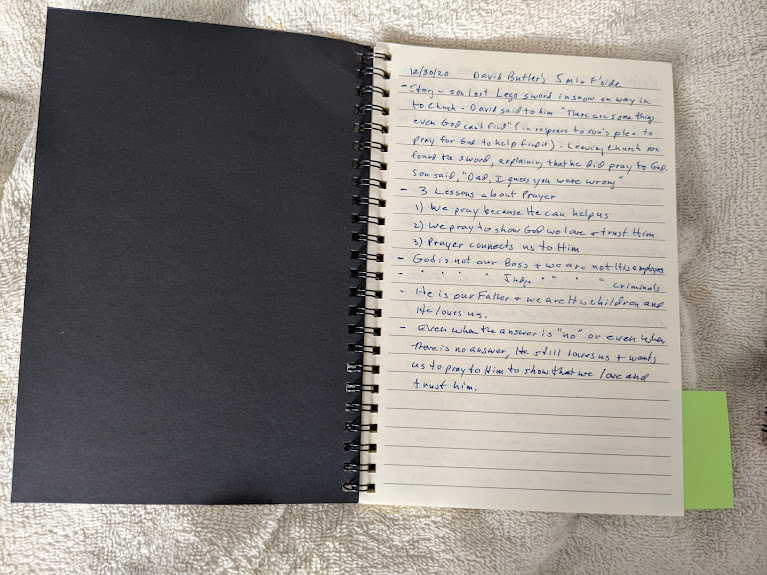 12/30/20 David Butler's 5 min F'side
- Story - son lost Lego sword in snow on way in
to church - David said to him "There are some things
even God can't find" (in response to son's plea to
pray for God to help find it) - Leaving church son
found the sword, explaining that he did pray to God.
Son said, "Dad, I guess you were wrong"
- 3 Lessons about Prayer
1) We pray because He can help us
2) We pray to show God we love + trust Him
3) Prayer connects us to Him
- God is not our Boss + we are not His employees
- " " " " Judge " " " " criminals
- He is our Father + we are His children and
He loves us.
- Even when the answer is "no" or even when
there is no answer, He still loves us + wants
us to pray to Him to show that we love and
trust him.